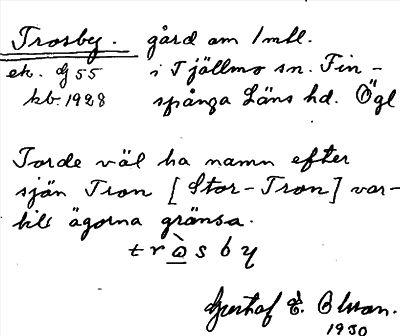 Trosby. gård om 1 mtl.
ek. G 55 i Tjällmo sn. Fin-
kb. 1928 spånga Läns hd. Ögl
Torde väl ha namn efter
sjön Tron [Stor-Tron] var-
till ägorna gränsa.
tr<u>ò</u>sby
Gustaf E. Olsson.
1930